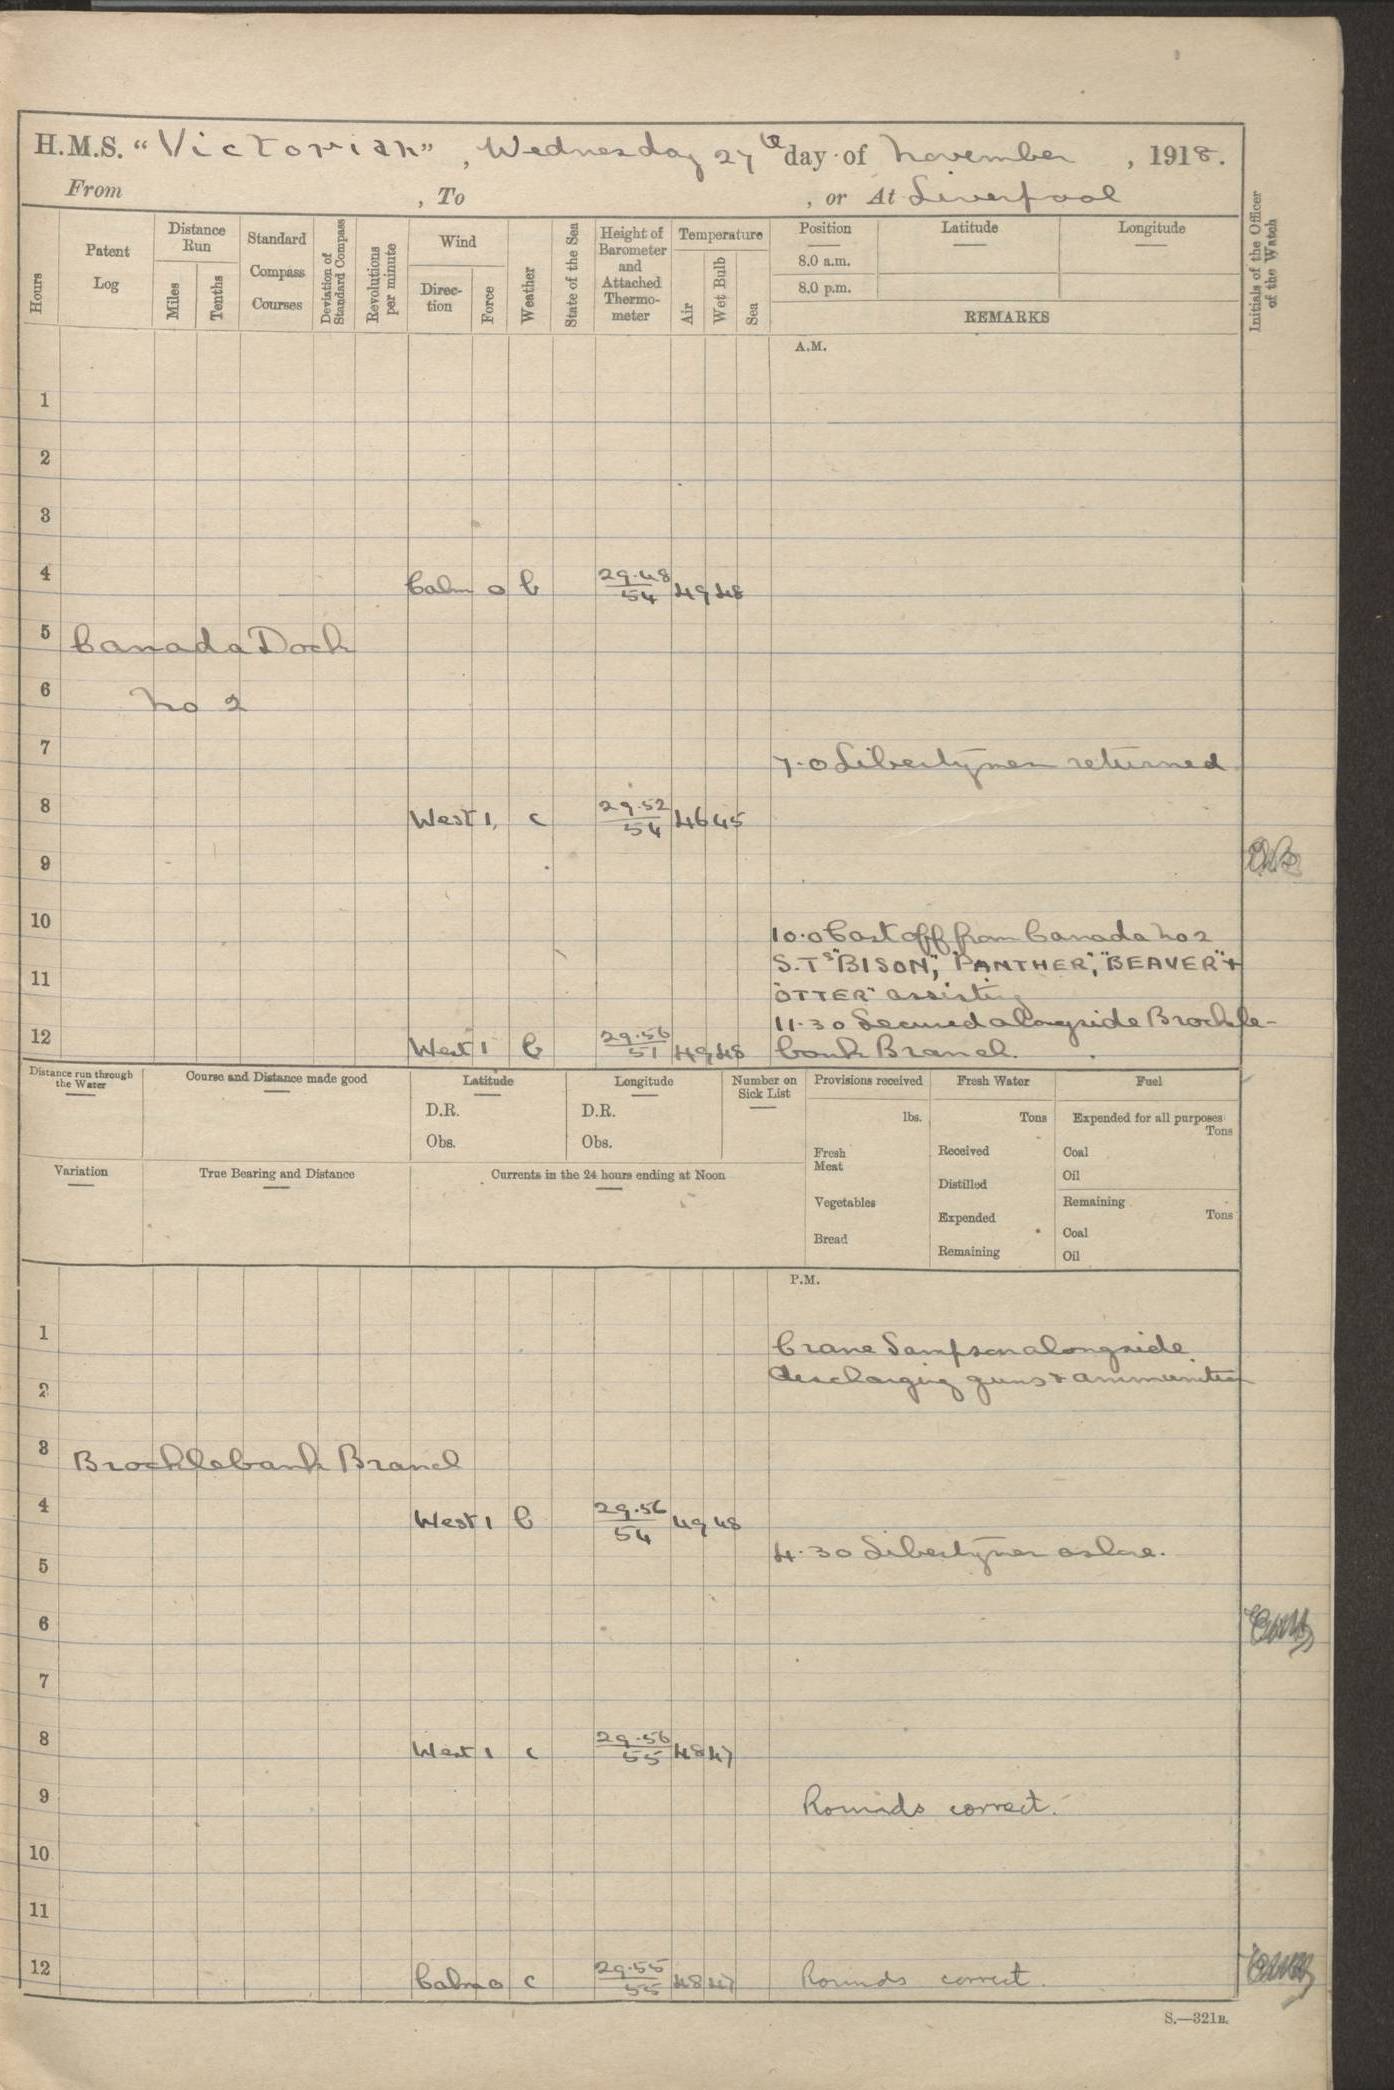 H.M.S. "Victorian", Wednesday 27th day of November, 1918.
From , To , or At Liverpool
Hours
Patent Log
Distance Run
Miles
Tenths
Standard Compass Courses
Deviation of Standard Compass
Revolutions per minute
Wind
Direction
Force
Weather
State of the Sea
Height of Barometer and Attached Thermometer
Temperature
Air
Wet Bulb
Sea
Position
8.0 a.m.
8.0 p.m.
Latitude
Longitude
REMARKS
Initials of the Officer of the Watch
A.M.
1
2
3
4 Calm 0 b 29.48 54 49 48
5 Canada Dock
6 No 2
7 7.0 Libertymen returned
8 West 1 c 29.52 54 46 45
9
10 10.0 Cast off from Canada No 2
S.Ts "BISON", "PANTHER", "BEAVER" +
11 "OTTER" assisting
11.30 Secured alongside Brockle-
12 West 1 b 29.56 51 49 48 bank Branch.
Distance run through the Water
Course and Distance made good
Latitude
D.R.
Obs.
Longitude
D.R.
Obs.
Number on Sick List
Provisions received
lbs.
Fresh Meat
Vegetables
Bread
Fresh Water
Tons
Received
Distilled
Expended
Remaining
Fuel
Expended for all purposes
Tons
Coal
Oil
Remaining
Tons
Coal
Oil
Variation
True Bearing and Distance
Currents in the 24 hours ending at Noon
P.M.
1 Crane Sampson alongside
2 discharging guns + ammunition
3 Brocklebank Branch
4 West 1 b 29.56 54 49 48
4.30 Libertymen ashore.
5
6
7
8 West 1 c 29.56 55 48 47
9 Rounds correct.
10
11
12 Calm 0 c 29.55 55 48 47 Rounds correct.
S.—321B.